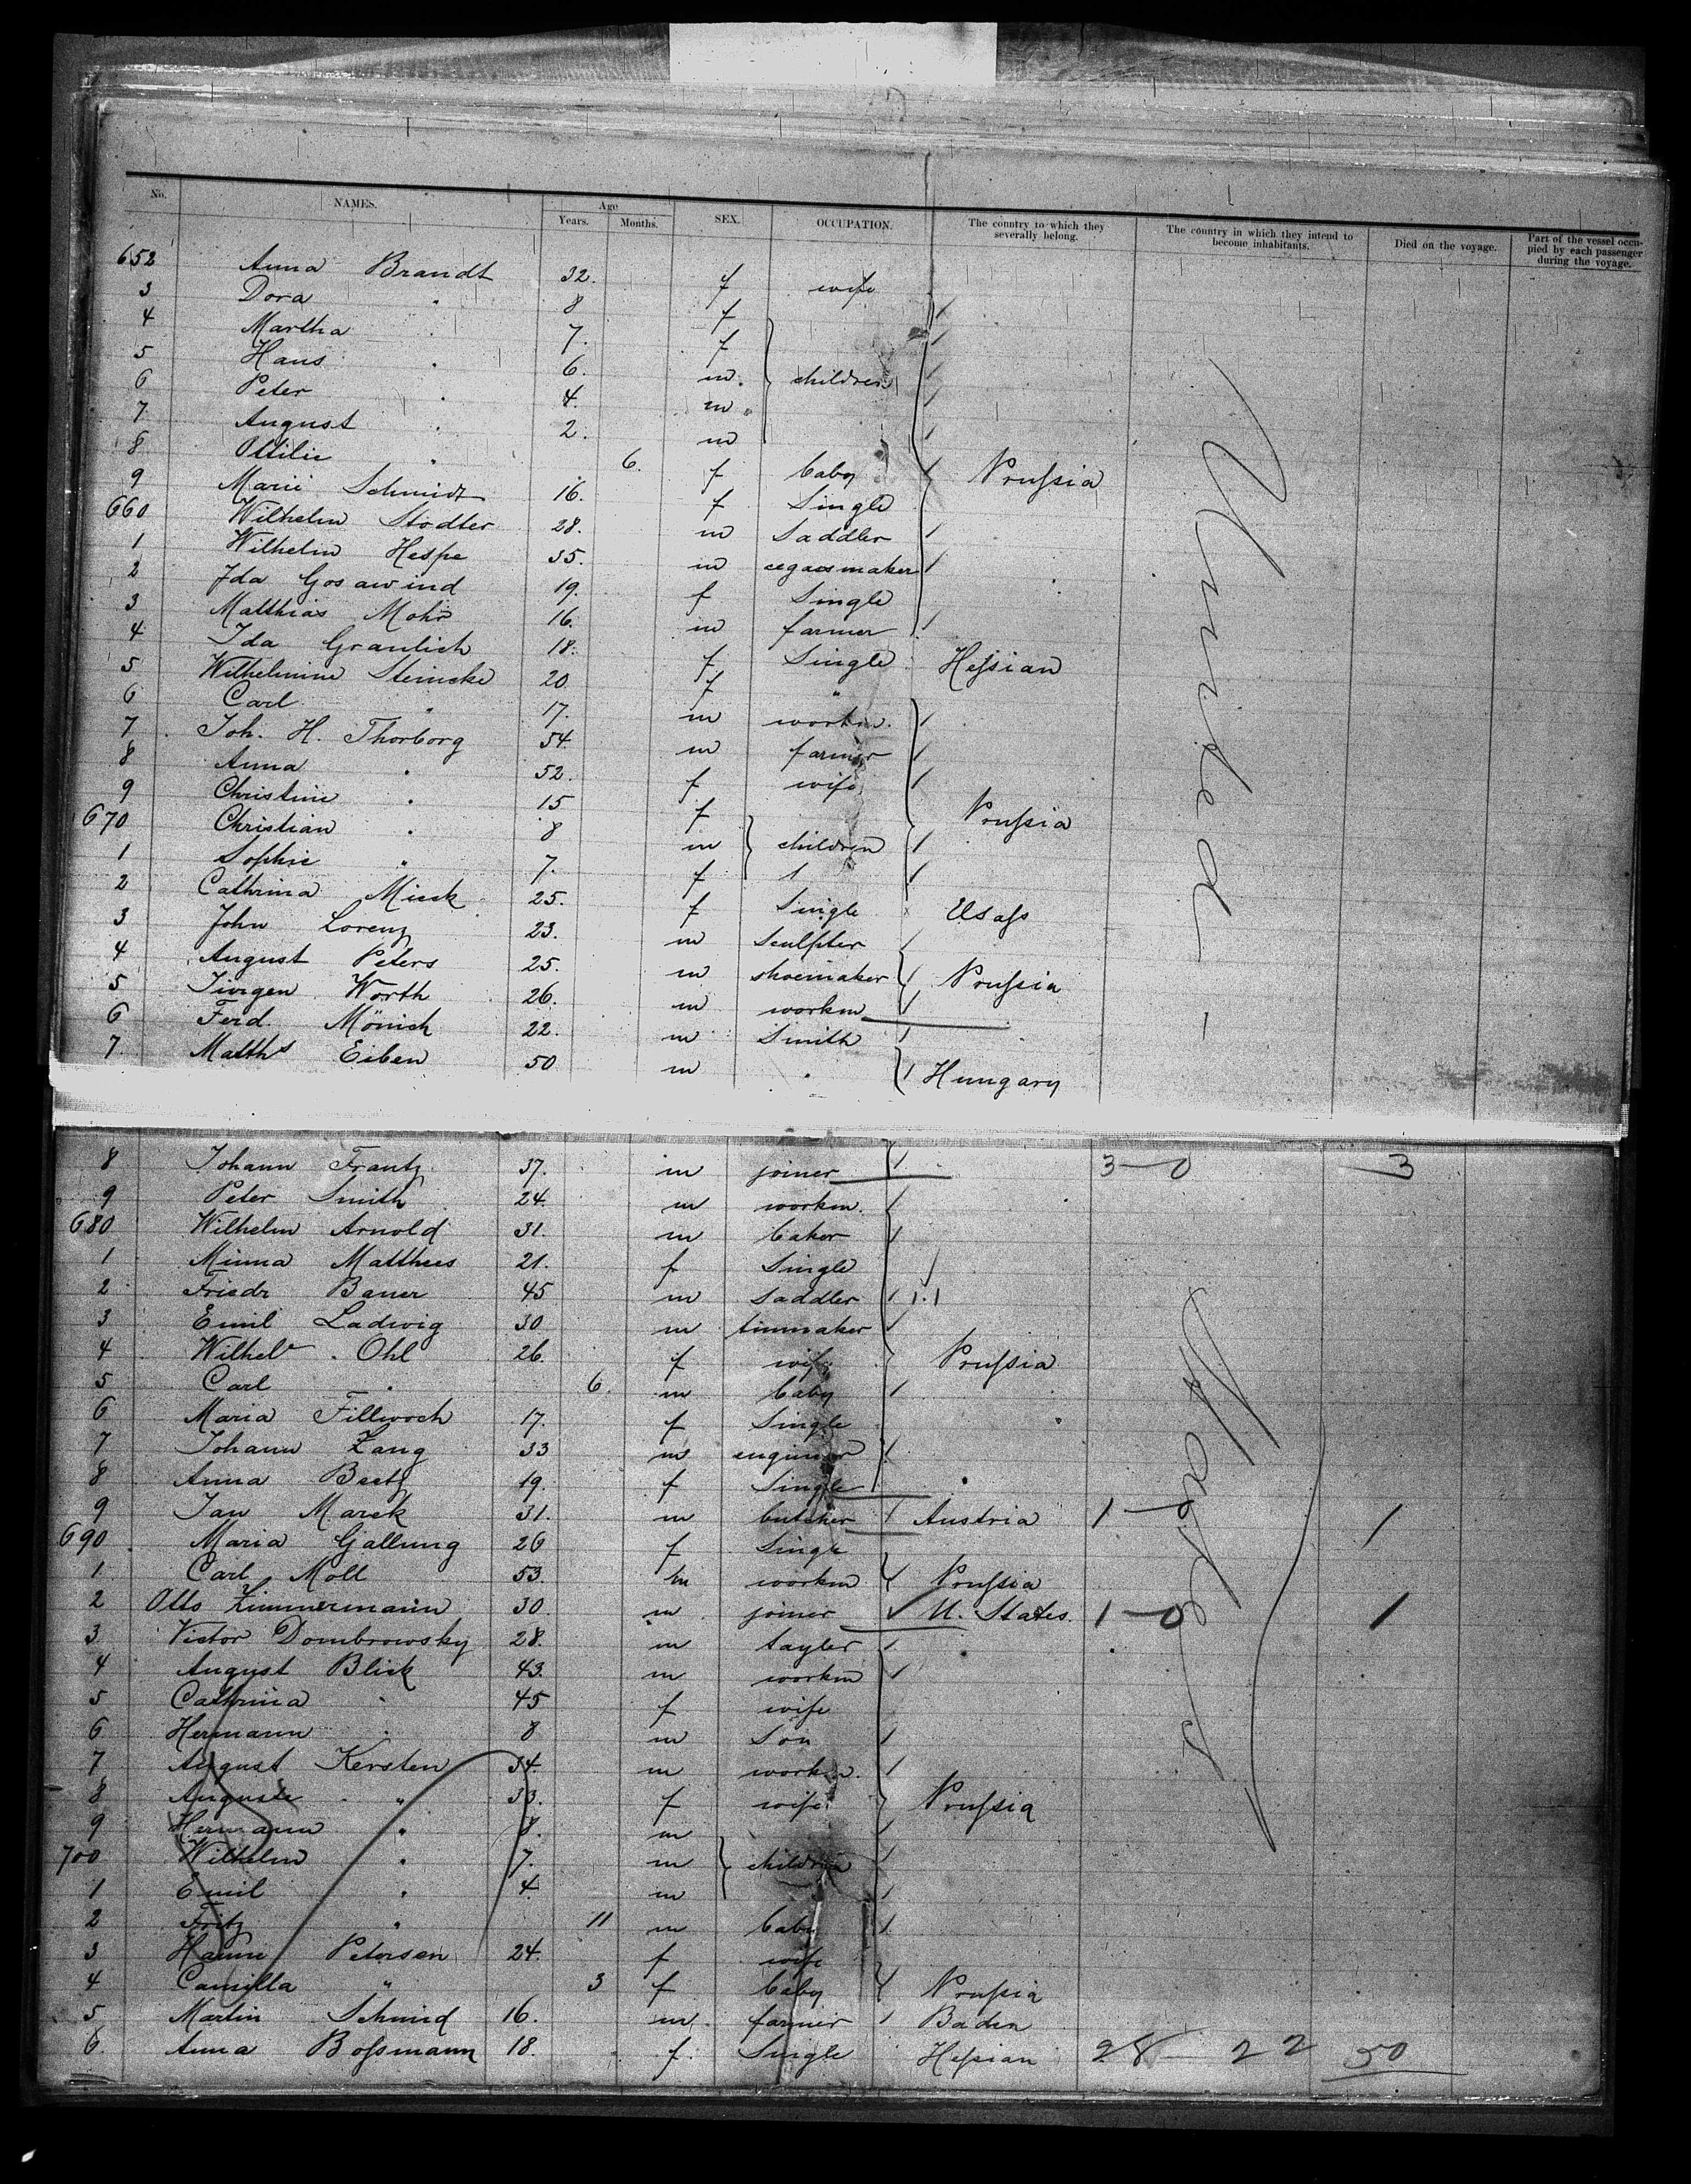 No. NAMES. Age Years. Months. SEX. OCCUPATION. The country to which they severally belong. The country in which they intend to become inhabitants. Died on the voyage. Part of the vessel occupied by each passenger during the voyage.
652 Anna Brandt 32. f wife
3 Dora " 8 f
4 Martha " 7. f
5 Hans " 6. m. children
6 Peter " 4. m.
7. August " 2. m
8 Ottilie " 6. f baby Prussia
9 Marie Schmidt 16. f Single
660 Wilhelm Stodter 28. m Saddler
1 Wilhelm Hespe 35. m cegarsmaker
2 Ida Gosawind 19. f Single
3 Matthias Mohr 16. m farmer
4 Ida Graulich 18. f Single Hessian
5 Wilhelmine Steincke 20 f "
6 Carl " 17. m workm.
7 Joh. H. Thorborg 54. m farmer
8 Anna " 52. f wife
9 Christine " 15 f Prussia
670 Christian " 8 m children
1 Sophie " 7. f
2 Cathrina Mieck 25. f Single Elsass
3 John Lorenz 23. m Sculpter
4 August Peters 25. m shoemaker Prussia
5 Jürgen Worth 26. m workm
6 Ferd. Mönich 22. m Smith
7. Matths Eiben 50 m " Hungary
8 Johann Frantz 37. m joiner 3-0 3
9 Peter Smith 24. m workm.
680 Wilhelm Arnold 31. m baker
1 Minna Matthees 21. f Single
2 Friedr Bauer 45 m Saddler
3 Emil Ladwig 30 m tinmaker
4 Ohl 26. f wife Prussia
5 Carl " 6. m baby
6 Maria Fillwoch 17. f Single
7 Johann Zang 33 m engineer
8 Anna Beetz 19. f Single
9 Jan Marek 31. m butcher Austria 1 1
690 Maria Gallung 26 f Single
1. Carl Moll 53. m workm Prussia
2 Otto Zimmermann 30. m joiner U. States. 1-0 1
3. Victor Dombrowsky 28. m tayler
4 August Blick 43. m workm
5 Cathrina " 45 f wife
6 Hermann " 8 m Son
7 August Kersten 34. m workm.
8 Auguste " 33. f wife Prussia
9 Hermann " 8. m
700 Wilhelm " 7. m children
1 Emil " 4. m
2 Fritz " 11 m baby
3 Hanne Petersen 24. f wife
4 Camilla " 3 f baby Prussia
5 Martin Schmid 16. m. farmer Baden
6. Anna Bossmann 18. f. Single Hessian 28 22 50